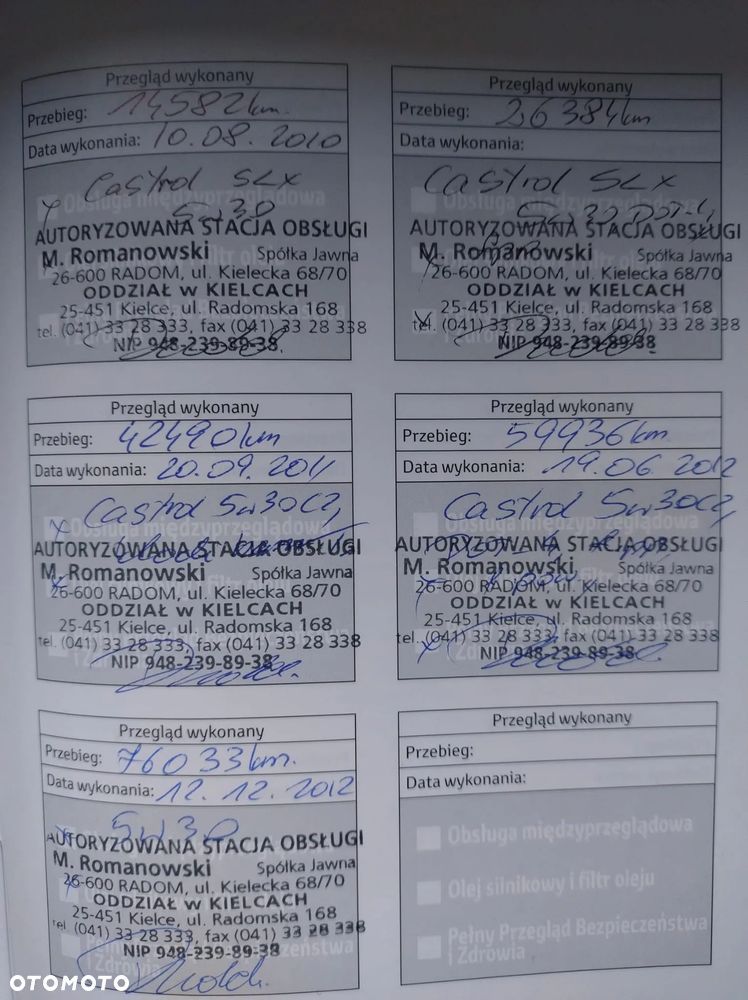 Przegląd wykonany
Przebieg: 14582km.
Data wykonania: 10.08.2010
Castrol SLX
5w30
AUTORYZOWANA STACJA OBSŁUGI
M. Romanowski Spółka Jawna
26-600 RADOM, ul. Kielecka 68/70
ODDZIAŁ w KIELCACH
25-451 Kielce, ul. Radomska 168
tel. (041) 33 28 333, fax (041) 33 28 338
NIP 948-239-89-38
Przegląd wykonany
Przebieg: 26384km
Data wykonania:
Castrol SLX
5w30 DOT-4
AUTORYZOWANA STACJA OBSŁUGI
M. Romanowski Spółka Jawna
26-600 RADOM, ul. Kielecka 68/70
ODDZIAŁ w KIELCACH
25-451 Kielce, ul. Radomska 168
tel. (041) 33 28 333, fax (041) 33 28 338
NIP 948-239-89-38
Przegląd wykonany
Przebieg: 42490km
Data wykonania: 20.09.2011
Castrol 5w30
Obsługa międzyprzeglądowa
AUTORYZOWANA STACJA OBSŁUGI
M. Romanowski Spółka Jawna
26-600 RADOM, ul. Kielecka 68/70
ODDZIAŁ w KIELCACH
25-451 Kielce, ul. Radomska 168
tel. (041) 33 28 333, fax (041) 33 28 338
NIP 948-239-89-38
Przegląd wykonany
Przebieg: 59936km.
Data wykonania: 19.06.2012
Castrol 5w30
Obsługa międzyprzeglądowa
AUTORYZOWANA STACJA OBSŁUGI
M. Romanowski Spółka Jawna
26-600 RADOM, ul. Kielecka 68/70
ODDZIAŁ w KIELCACH
25-451 Kielce, ul. Radomska 168
tel. (041) 33 28 333, fax (041) 33 28 338
NIP 948-239-89-38
Przegląd wykonany
Przebieg: 76033km.
Data wykonania: 12.12.2012
5w30
AUTORYZOWANA STACJA OBSŁUGI
M. Romanowski Spółka Jawna
26-600 RADOM, ul. Kielecka 68/70
ODDZIAŁ w KIELCACH
25-451 Kielce, ul. Radomska 168
tel. (041) 33 28 333, fax (041) 33 28 338
NIP 948-239-89-38
Przegląd wykonany
Przebieg:
Data wykonania:
Obsługa międzyprzeglądowa
Olej silnikowy i filtr oleju
Pełny Przegląd Bezpieczeństwa
i Zdrowia
OTOMOTO